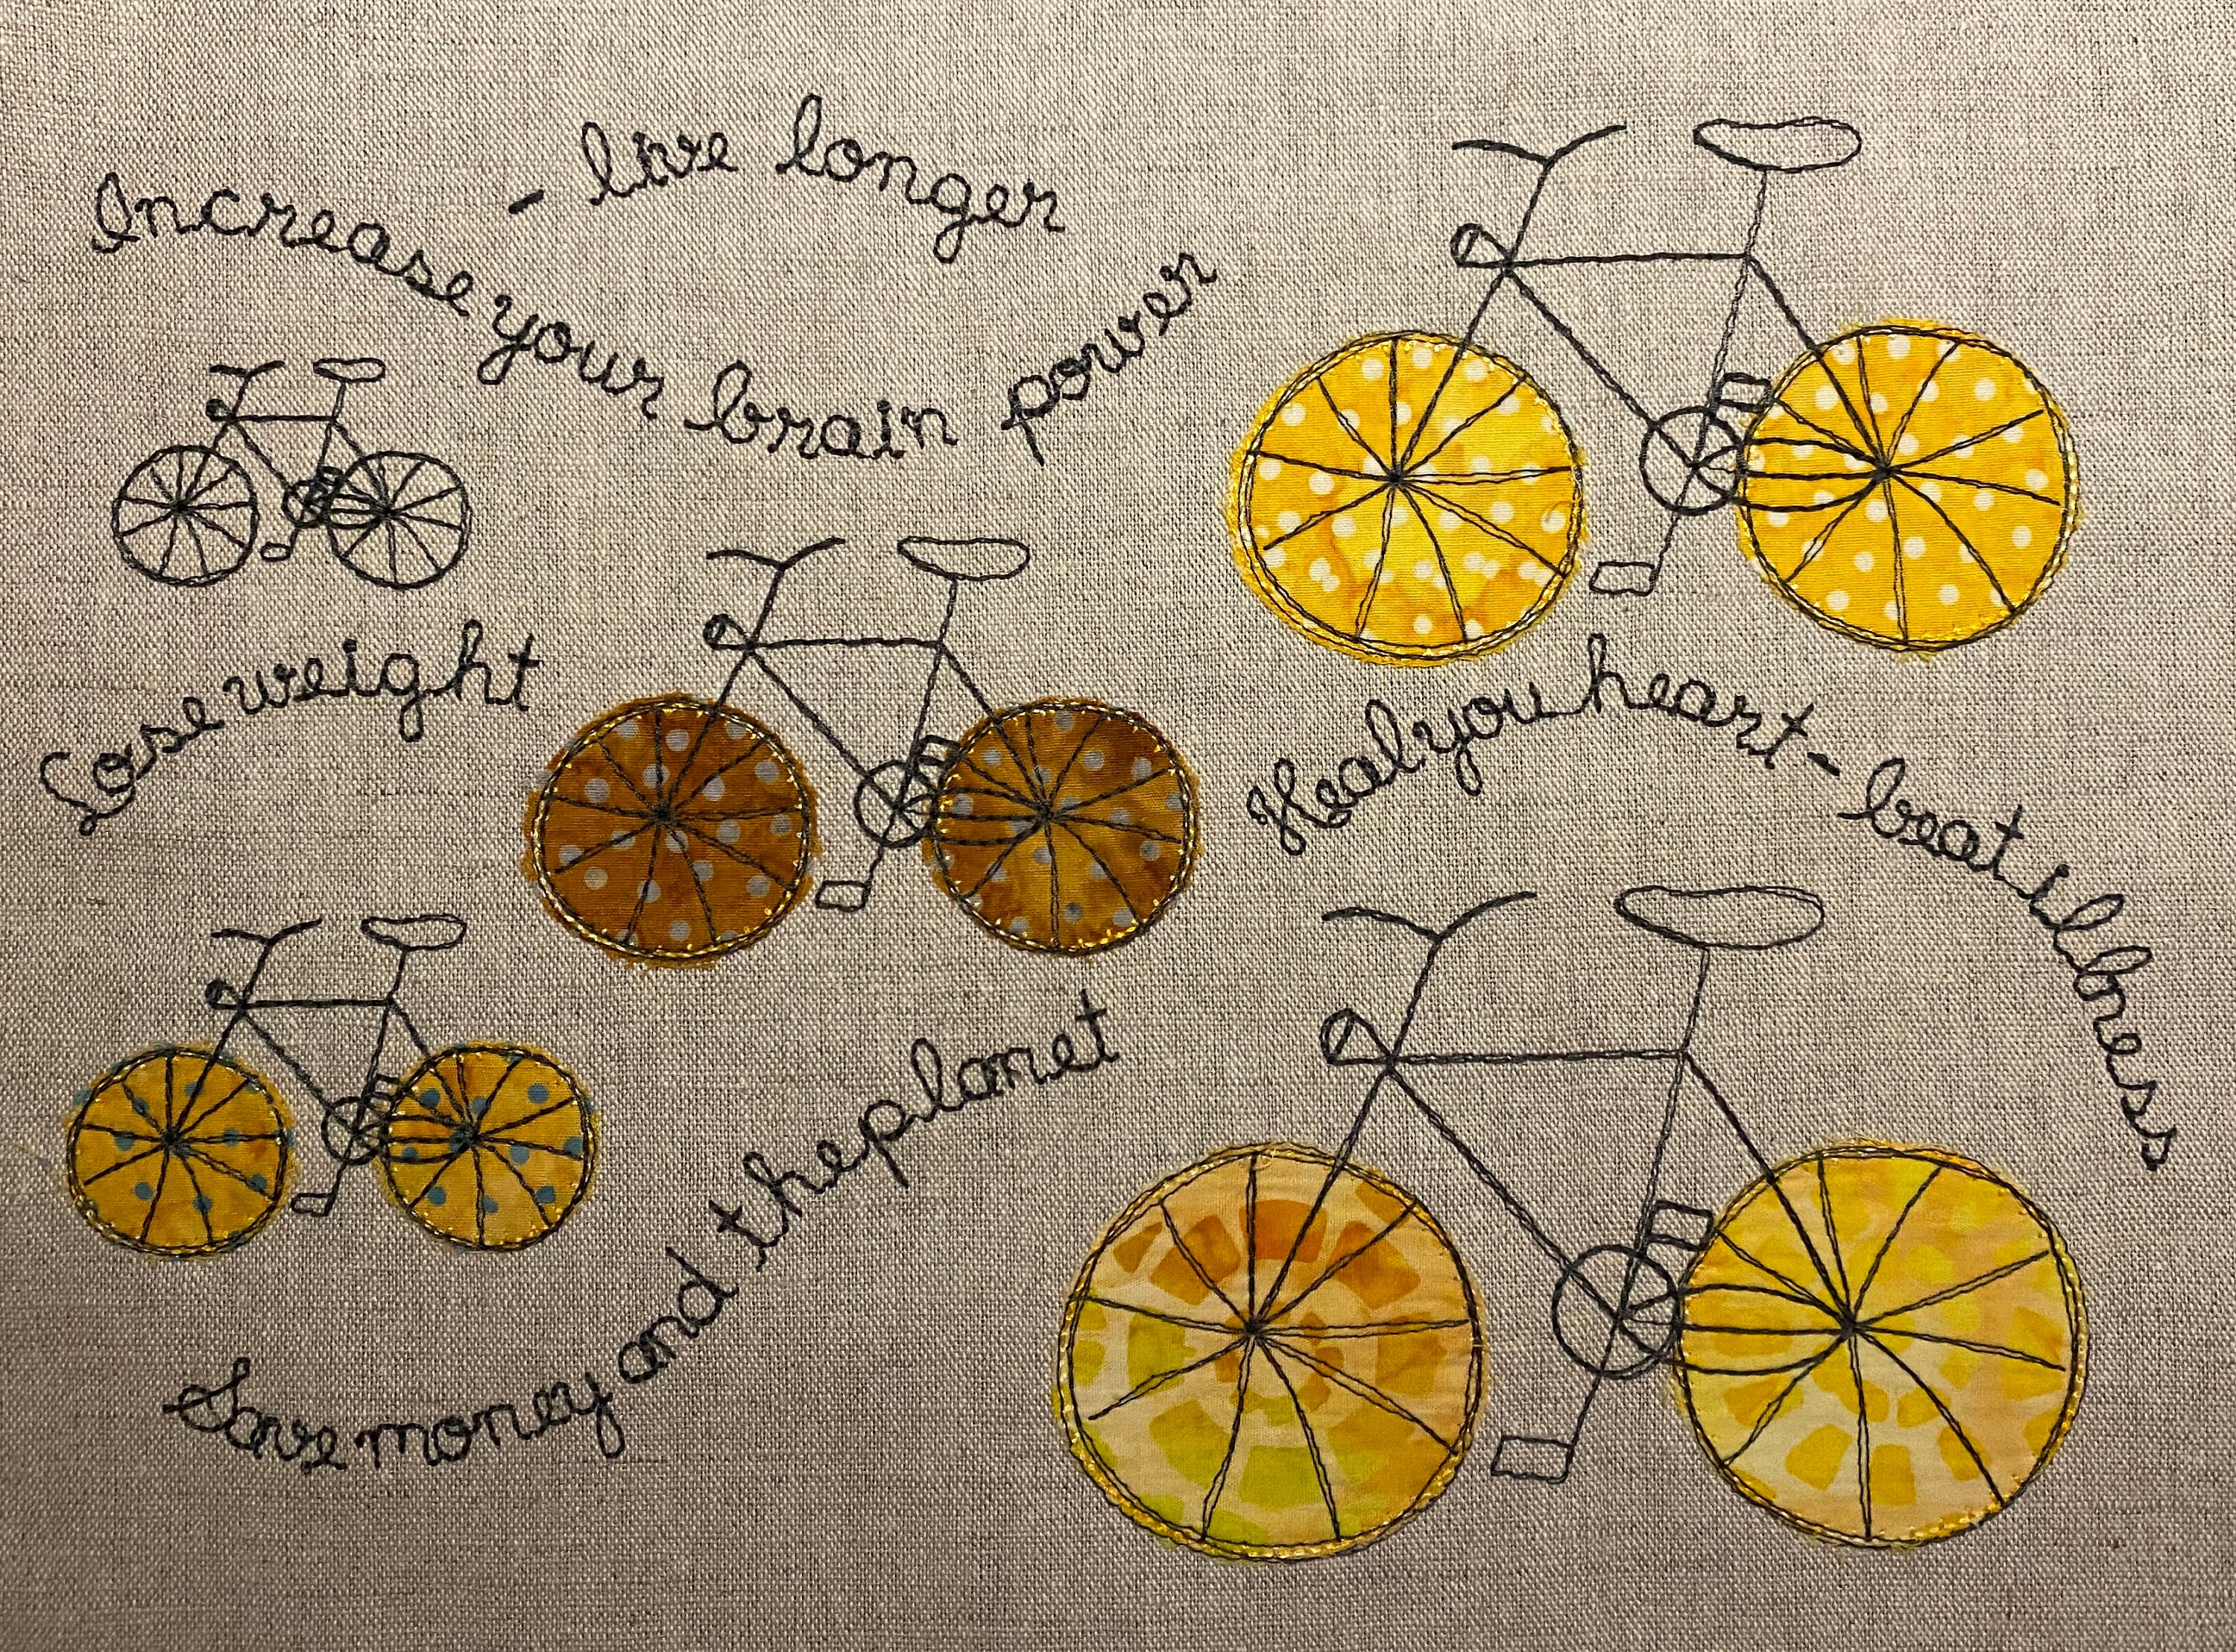 - live longer
Increase your brain power
Lose weight
Heal you heart - beat illness
Save money and the planet